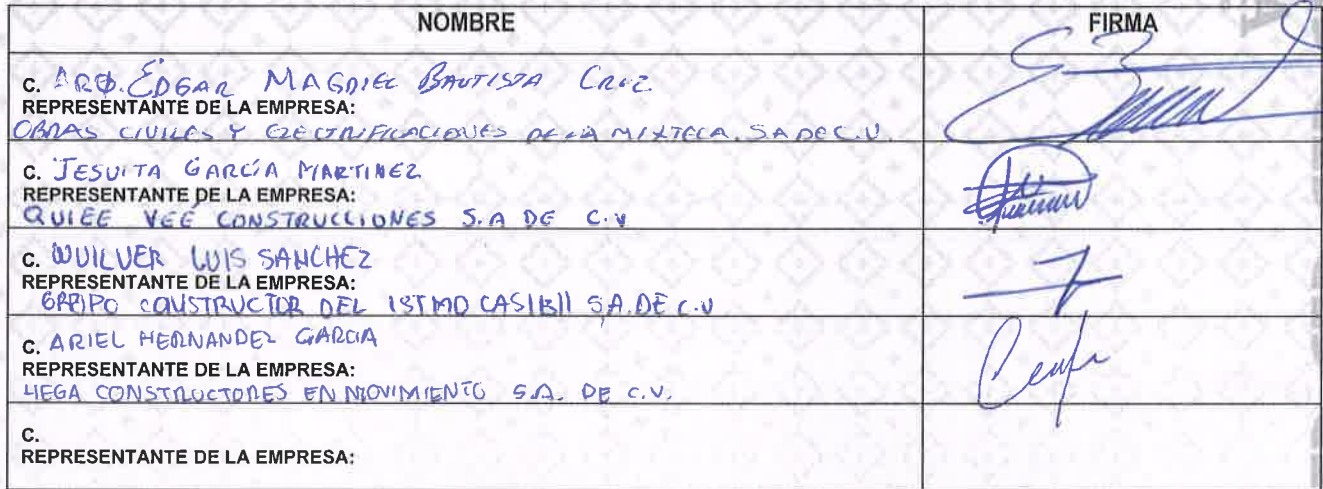 NOMBRE FIRMA
C. ARQ. EDGAR MAGDIEL BAUTISTA CRUZ
REPRESENTANTE DE LA EMPRESA:
OBRAS CIVILES Y ELECTRIFICACIONES DE LA MIXTECA. SA DE C.V.
C. JESUITA GARCÍA MARTINEZ
REPRESENTANTE DE LA EMPRESA:
QUIEE YEE CONSTRUCCIONES S.A DE C.V
C. WUILVER LUIS SANCHEZ
REPRESENTANTE DE LA EMPRESA:
GRUPO CONSTRUCTOR DEL ISTMO CASIBII S.A. DE C.V
C. ARIEL HERNANDEZ GARCIA
REPRESENTANTE DE LA EMPRESA:
HEGA CONSTRUCTORES EN MOVIMIENTO S.A. DE C.V.
C.
REPRESENTANTE DE LA EMPRESA: